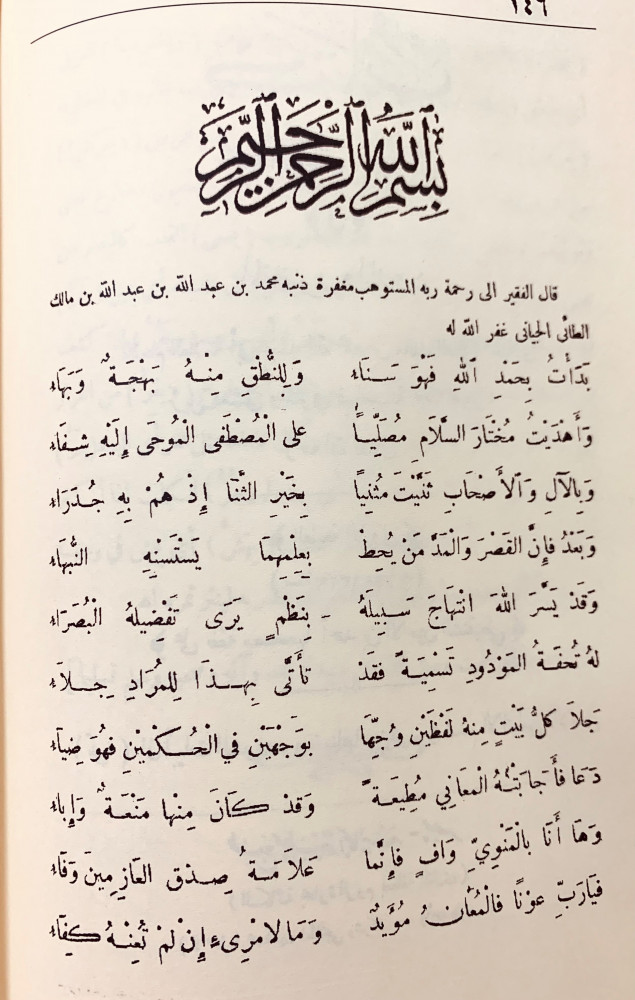 ١٤٦
بِسْمِ ٱللَّهِ ٱلرَّحْمَٰنِ ٱلرَّحِيمِ
قال الفقير الى رحمة ربه المستوهب مغفرة ذنبه محمد بن عبد الله بن عبد الله بن مالك
الطائى الجيانى غفر الله له
بَدَأْتُ بِحَمْدِ ٱللهِ فَهْوَ سَنَاءُ وَلِلنُّطْقِ مِنْهُ بَهْجَةٌ وَبَهَاءُ
وَأَهْدَيْتُ مُخْتَارَ السَّلَامِ مُصَلِّيًا على الْمُصْطَفَى الْمُوحَى إِلَيْهِ شِفَاءُ
وَبِالآلِ وَالأَصْحَابِ ثَنَّيْتَ مُثْنِيًا بِخَيْرِ الثَّنَا إِذْ هُمْ بِهِ جُدَرَاءُ
وَبَعْدُ فَإِنَّ القَصْرَ وَالْمَدَّ مَنْ يُحِطْ بِعِلْمِهِمَا يَسْتَسْنِهِ النُّبَهَاءُ
وَقَدْ يَسَّرَ اللهُ انْتِهَاجَ سَبِيلَهُ - بِنَظْمٍ يَرَى تَفْصِيلَهُ الْبُصَرَاءُ
لهُ تُحْفَةُ المَوْدُودِ تَسْمِيَةً فَقَدْ تَأَتَّى بِهٰذَا لِلمُرَادِ جِلَاءُ
جَلاَ كلُّ بَيْتٍ مِنهُ لَفْظَيْنِ وُجِّهَا بوَجْهَيْنِ في الْحُكْمَيْنِ فَهُوَ ضِيَاءُ
دَعَا فَأَجَابَتْهُ الْمَعَانِي مُطِيعَةً وَقَدْ كَانَ مِنْهَا مَنْعَةٌ وَإِبَاءُ
وَهَا أَنَا بالْمَنْوِيِّ وَافٍ فَإِنَّما عَلَامَةُ صِدْقِ العَازِمِينَ وَفَاءُ
فيَارَبِّ عَوْنًا فَالْمُعَانُ مُؤَيَّدٌ وَمَا لامْرِىءٍ إِنْ لَمْ تُعِنْهُ كِفَاءُ